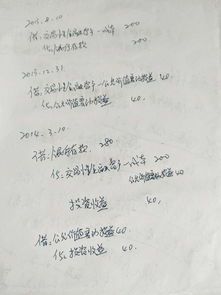 2013.8.10
借：交易性金融资产—成本 200
贷：银行存款 200
2013.12.31
借：交易性金融资产—公允价值变动 40
贷：公允价值变动损益 40.
2014.3.10.
借：银行存款 280
贷：交易性金融资产—成本 200
公允价值变动 40
投资收益 40.
借：公允价值变动损益 40
贷：投资收益 40.